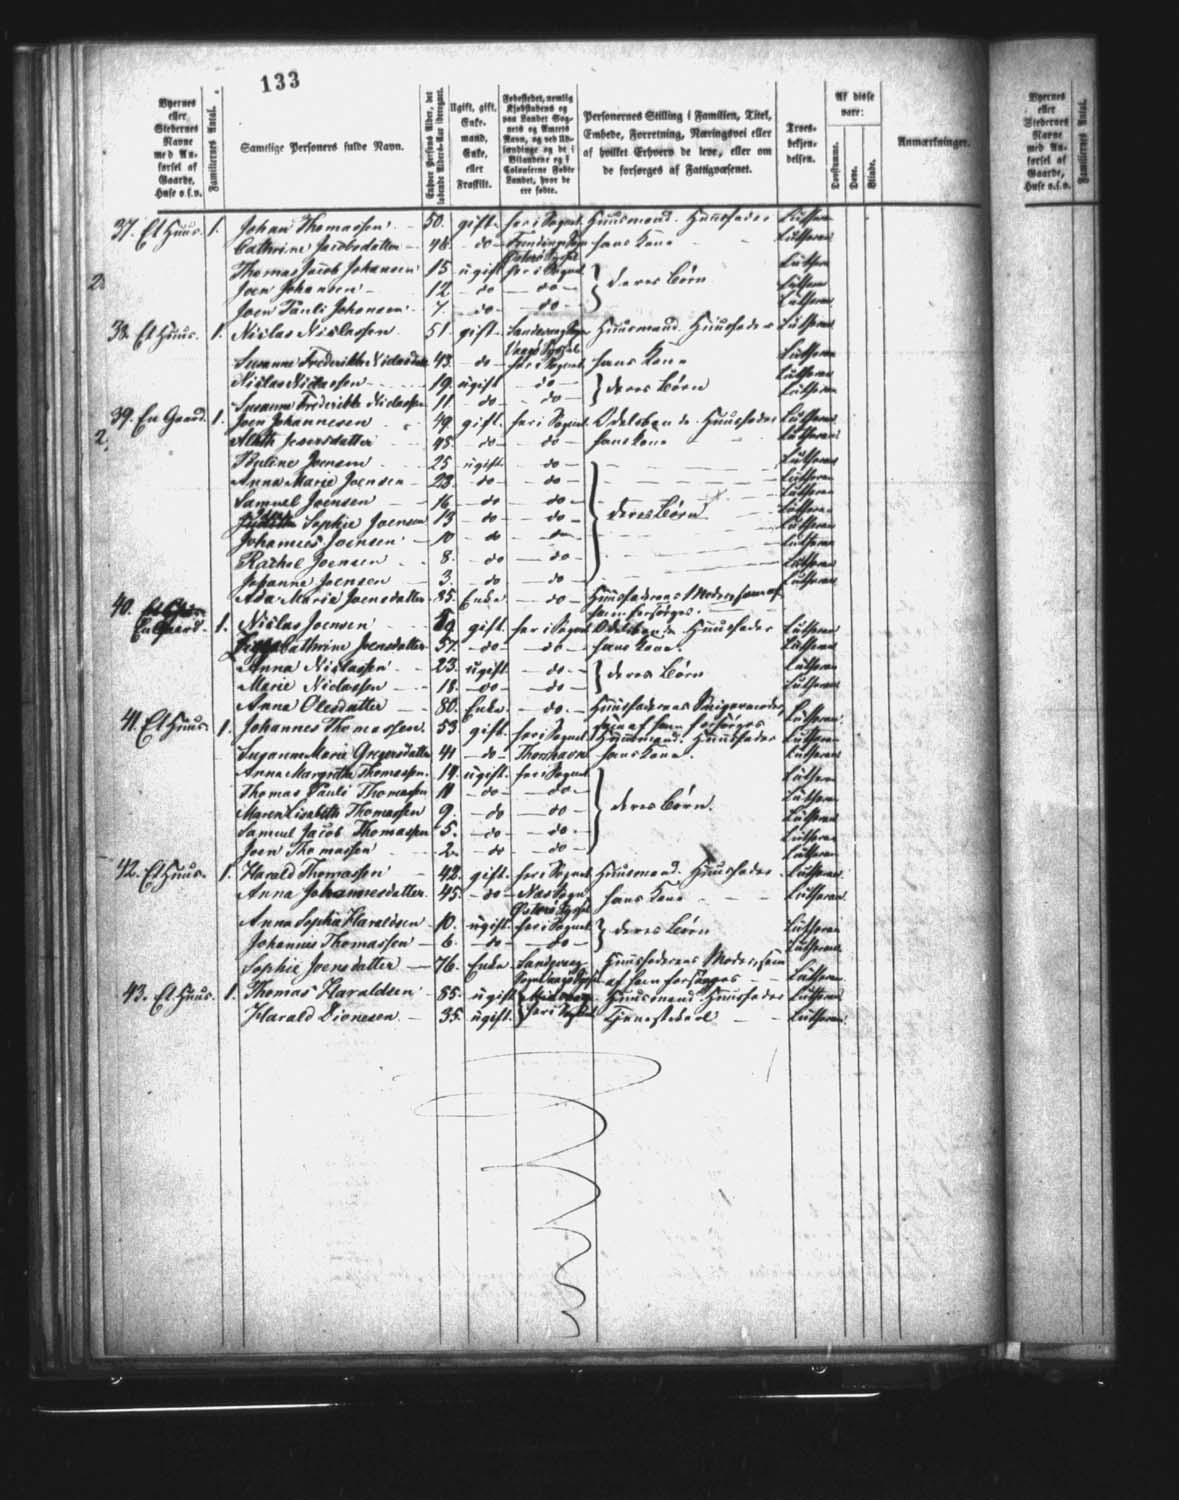 133
Byernes eller Stedernes Navne med Anførsel af Gaarde, Huse o.s.v.
Familiernes Antal.
Samtlige Personers fulde Navn.
Enhver Persons Alder, det løbende Alders-Aar iberegnet.
Ugift, gift, Enkemand, Enke, eller Fraskilt.
Fødestedet, nemlig Kjøbstadens og paa Landet Sognets og Amtets Navn, og ved Udlændinge og de i Bilandene og i Colonierne Fødte Landet, hvor de ere fødte.
Personernes Stilling i Familien, Titel, Embede, Forretning, Næringsvei eller af hvilket Erhverv de leve, eller om de forsørges af Fattigvæsenet.
Troesbekjendelsen.
Af disse vare:
Døvstumme.
Døve.
Blinde.
Anmærkninger.
37. Et Huus. 1. Johan Thomassen 50. gift. her i Sognet Huusmand. Huusfader Luthersk
Cathrine Jacobsdatter 48. do Østerø Syssel hans Kone Luthersk
Thomas Jacob Johansen 15 ugift her i Sognet deres Børn Luthersk
Joen Johansen 12 do do Luthersk
Joen Pauli Johansen 7. do do Luthersk
38. Et Huus. 1. Niclas Niclassen 51. gift. Vaagø Syssel Huusmand. Huusfader Luthersk
Susanne Frederikke Niclasdatter 43. do her i Sognet hans Kone Luthersk
Niclas Niclassen 19. ugift do deres Børn Luthersk
Susanne Frederikke Niclassen 11 do do Luthersk
39. En Gaard. 1. Joen Johannesen 49 gift. her i Sognet Odelsbonde. Huusfader Luthersk
2. 45 do do hans Kone Luthersk
Joensen 25 ugift. do Luthersk
Anna Marie Joensen 23. do do Luthersk
Samuel Joensen 16 do do Luthersk
Sophie Joensen 13 do do deres Børn Luthersk
Johannes Joensen 10 do do Luthersk
Rachel Joensen 8. do do Luthersk
Johanne Joensen 3. do do Luthersk
Ada Maria Joensdatter 85. Enke do Huusfaderens Moder som af ham forsørges. Luthersk
40. En Gaard. 1. Niclas Joensen gift. her i Sognet Odelsbonde Huusfader Luthersk
Cathrine Joensdatter 57. do do hans Kone. Luthersk
Anna Niclassen 23. ugift. do deres Børn Luthersk
Marie Niclassen 18. do do Luthersk
Anna Olesdatter 80. Enke do Huusfaderens Svigermoder, som af ham forsørges Luthersk
41. Et Huus. 1. Johannes Thomassen. 53 gift. her i Sognet Huusmand. Huusfader Luthersk
Susanne Marie Gregersdatter 41 do Thorshavn hans Kone. Luthersk
Anna Margretha Thomassen. 14. ugift. her i Sognet Luthersk
Thomas Pauli Thomassen 11 do do Luthersk
Maren Lisabeth Thomassen 9. do do deres Børn. Luthersk
Samuel Jacob Thomassen 5. do do Luthersk
Joen Thomassen 2. do do Luthersk
42. Et Huus. 1. Harald Thomassen 42. gift. her i Sognet Huusmand. Huusfader Luthersk
Anna Johannesdatter 45. do Næs Sogn Østerø Syssel hans Kone Luthersk
Anna Sophie Haraldsen 10. ugift her i Sognet deres Børn Luthersk
Johannes Thomassen 6. do do Luthersk
Sophie Joensdatter 76. Enke Huusfaderens Moder, som af ham forsørges Luthersk
43. Et Huus. 1. Thomas Haraldsen 85. ugift Huusmand Huusfader Luthersk
Harald 35. ugift. her i Sognet Tjenestekarl Luthersk
Byernes eller Stedernes Navne med Anførsel af Gaarde, Huse o.s.v.
Familiernes Antal.